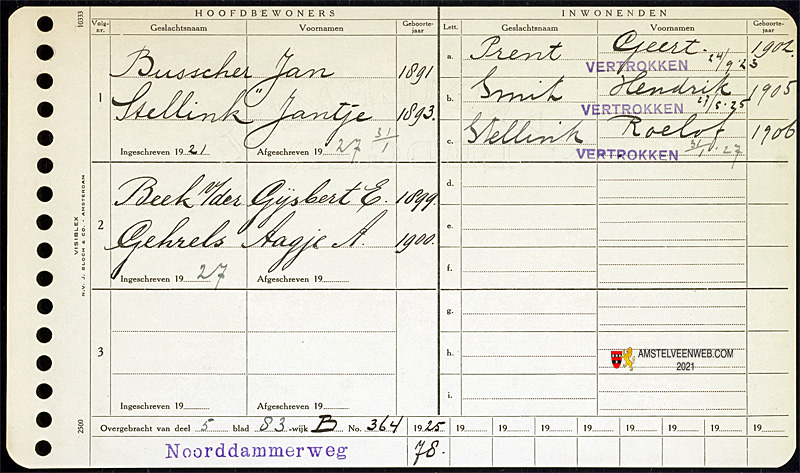 HOOFDBEWONERS
Volg-nr. Geslachtsnaam Voornamen Geboorte-jaar
1
Busscher Jan 1891
Stellink " Jantje 1893.
Ingeschreven 1921 Afgeschreven 1927 31/1
2
Beek v/der Gijsbert E. 1899.
Gehrels Aagje A. 1900.
Ingeschreven 1927 Afgeschreven 19
3
Ingeschreven 19 Afgeschreven 19
INWONENDEN
Lett. Geslachtsnaam Voornamen Geboorte-jaar
a. Prent Geert. 1902.
VERTROKKEN 24/9 '23
b. Smit Hendrik 1905
VERTROKKEN 27/5-25
c. Stellink Roelof 1906
VERTROKKEN 31/1-27
d.
e.
f.
g.
h.
i.
AMSTELVEENWEB.COM
2021
Overgebracht van deel 5 blad 83 -wijk B No. 364 1925 19 19 19 19 19 19 19 19
Noorddammerweg 78.
10333
VISIBLEX
N.V. J. BLOCH & CO. - AMSTERDAM
2500